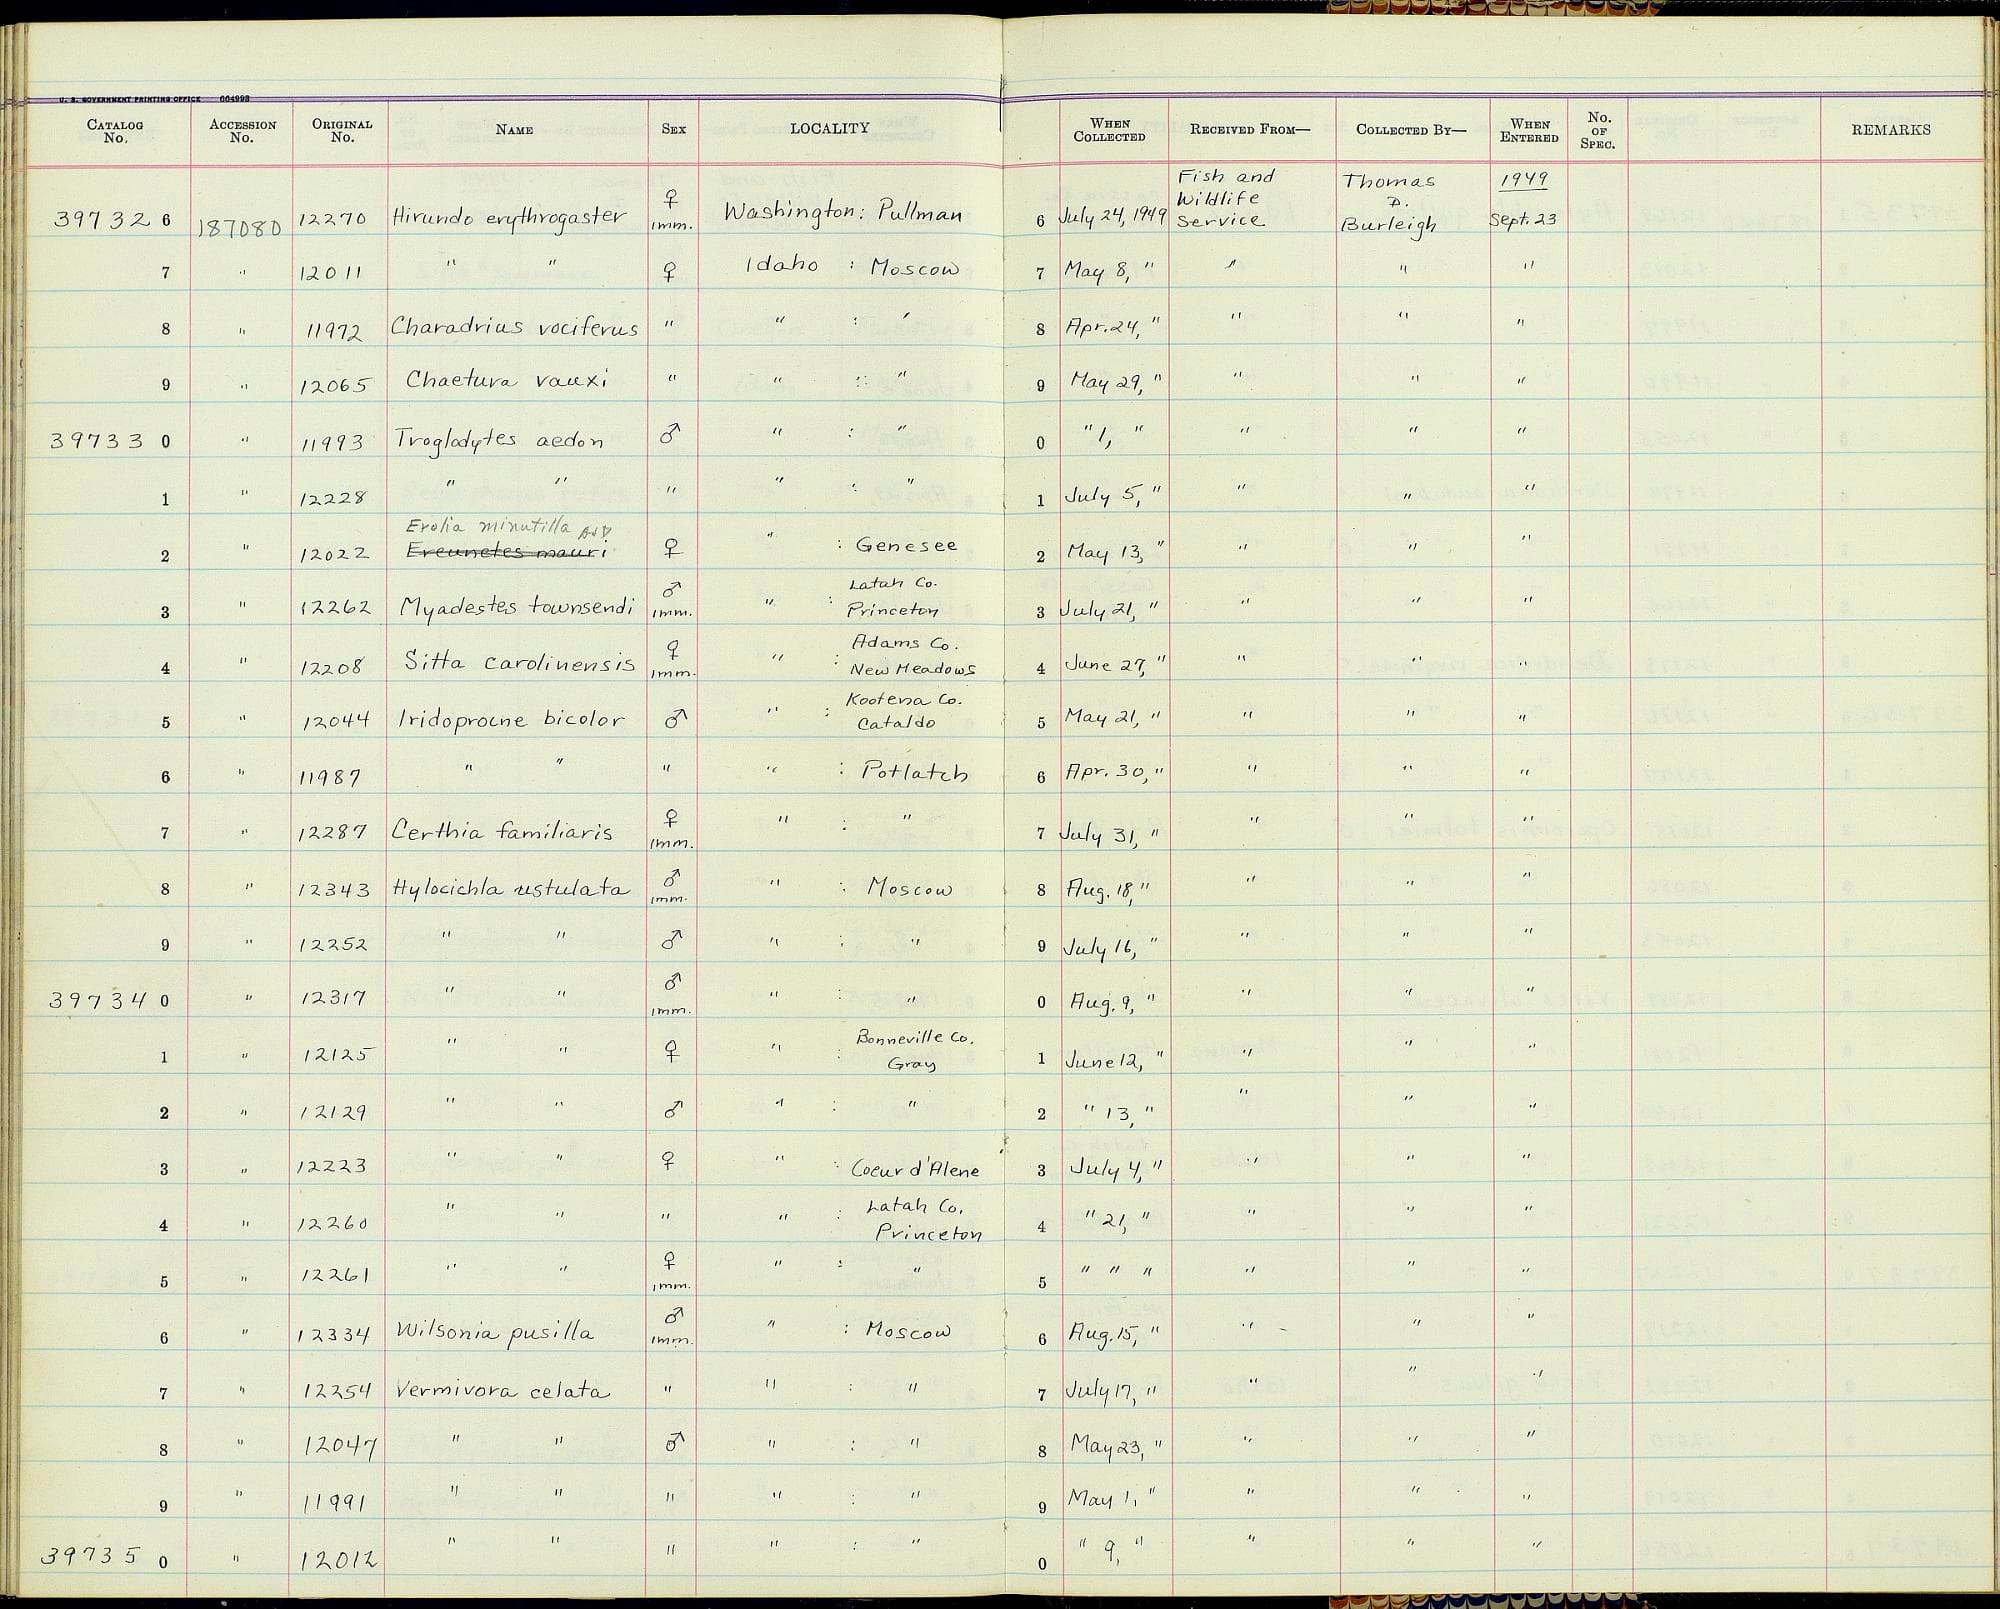 U. S. GOVERNMENT PRINTING OFFICE 664998
CATALOG No. ACCESSION No. ORIGINAL No. NAME SEX LOCALITY WHEN COLLECTED RECEIVED FROM— COLLECTED BY— WHEN ENTERED No. OF SPEC. REMARKS
39732 6 187080 12270 Hirundo erythrogaster ♀ imm. Washington: Pullman 6 July 24, 1949 Fish and Wildlife Service Thomas D. Burleigh 1949 Sept. 23
7 " 12011 " " ♀ Idaho : Moscow 7 May 8, " " " "
8 " 11972 Charadrius vociferus " " : " 8 Apr. 24, " " " "
9 " 12065 Chaetura vauxi " " : " 9 May 29, " " " "
39733 0 " 11993 Troglodytes aedon ♂ " : " 0 " 1, " " " "
1 " 12228 " " " " : " 1 July 5, " " " "
2 " 12022 Erolia minutilla Ereunetes mauri ♀ " : Genesee 2 May 13, " " " "
3 " 12262 Myadestes townsendi ♂ imm. " : Latah Co. Princeton 3 July 21, " " " "
4 " 12208 Sitta carolinensis ♀ imm. " : Adams Co. New Meadows 4 June 27, " " " "
5 " 12044 Iridoprocne bicolor ♂ " : Kootena Co. Cataldo 5 May 21, " " " "
6 " 11987 " " " " : Potlatch 6 Apr. 30, " " " "
7 " 12287 Certhia familiaris ♀ imm. " : " 7 July 31, " " " "
8 " 12343 Hylocichla ustulata ♂ imm. " : Moscow 8 Aug. 18, " " " "
9 " 12252 " " ♂ " : " 9 July 16, " " " "
39734 0 " 12317 " " ♂ imm. " : " 0 Aug. 9, " " " "
1 " 12125 " " ♀ " : Bonneville Co. Gray 1 June 12, " " " "
2 " 12129 " " ♂ " : " 2 " 13, " " " "
3 " 12223 " " ♀ " : Coeur d'Alene 3 July 4, " " " "
4 " 12260 " " " " : Latah Co. Princeton 4 " 21, " " " "
5 " 12261 " " ♀ imm. " : " 5 " " " " " "
6 " 12334 Wilsonia pusilla ♂ imm. " : Moscow 6 Aug. 15, " " " "
7 " 12254 Vermivora celata " " : " 7 July 17, " " " "
8 " 12047 " " ♂ " : " 8 May 23, " " " "
9 " 11991 " " " " : " 9 May 1, " " " "
39735 0 " 12012 " " " " : " 0 " 9, " " " "